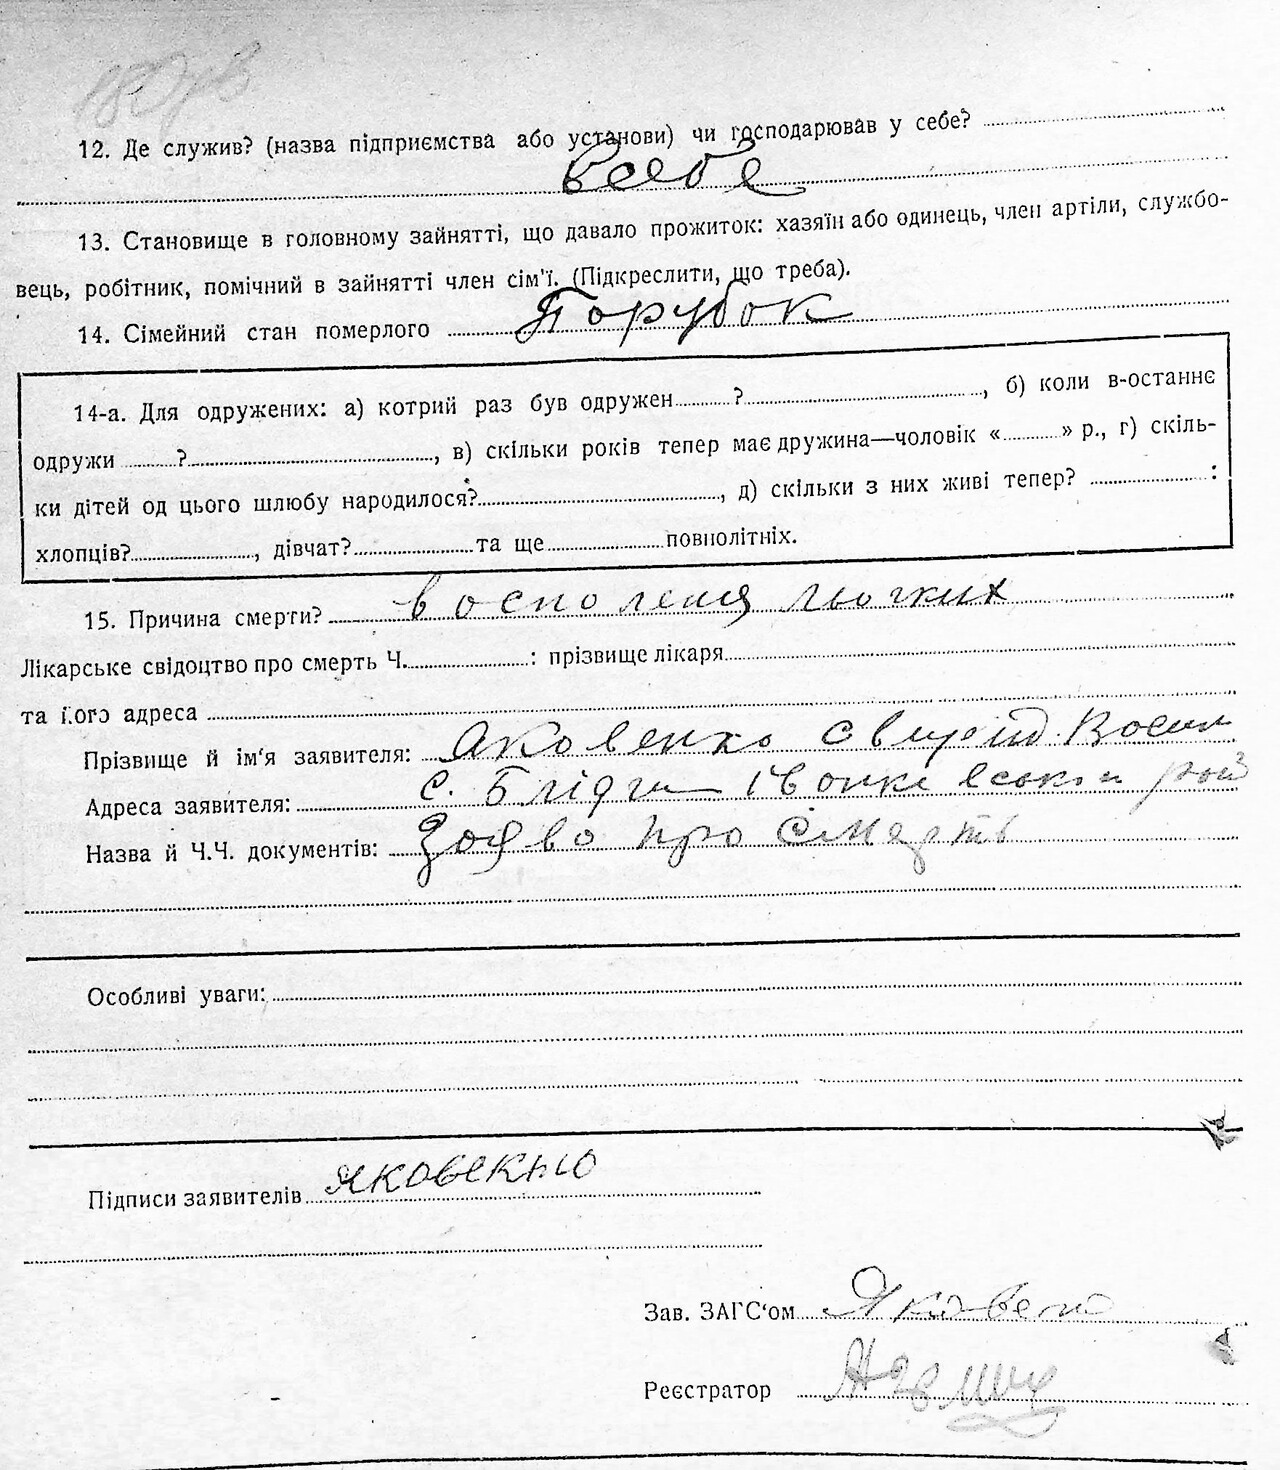 12. Де служив? (назва підприємства або установи) чи господарював у себе?
В себе
13. Становище в головному зайнятті, що давало прожиток: хазяїн або одинець, член артіли, службо-
вець, робітник, помічний в зайнятті член сім'ї. (Підкреслити, що треба).
14. Сімейний стан померлого Порубок
14-а. Для одружених: а) котрий раз був одружен ? , б) коли в-останнє
одружи ? , в) скільки років тепер має дружина—чоловік « » р., г) скіль-
ки дітей од цього шлюбу народилося? , д) скільки з них живі тепер? :
хлопців? , дівчат? та ще повнолітніх.
15. Причина смерти? восполеня льогких
Лікарське свідоцтво про смерть Ч. : прізвище лікаря
та його адреса
Прізвище й ім'я заявителя: Яковенко Свирид Восил
Адреса заявителя: с.
Назва й Ч.Ч. документів: Зоява про Смерть
Особливі уваги:
Підписи заявителів Яковекно
Зав. ЗАГС'ом
Реєстратор